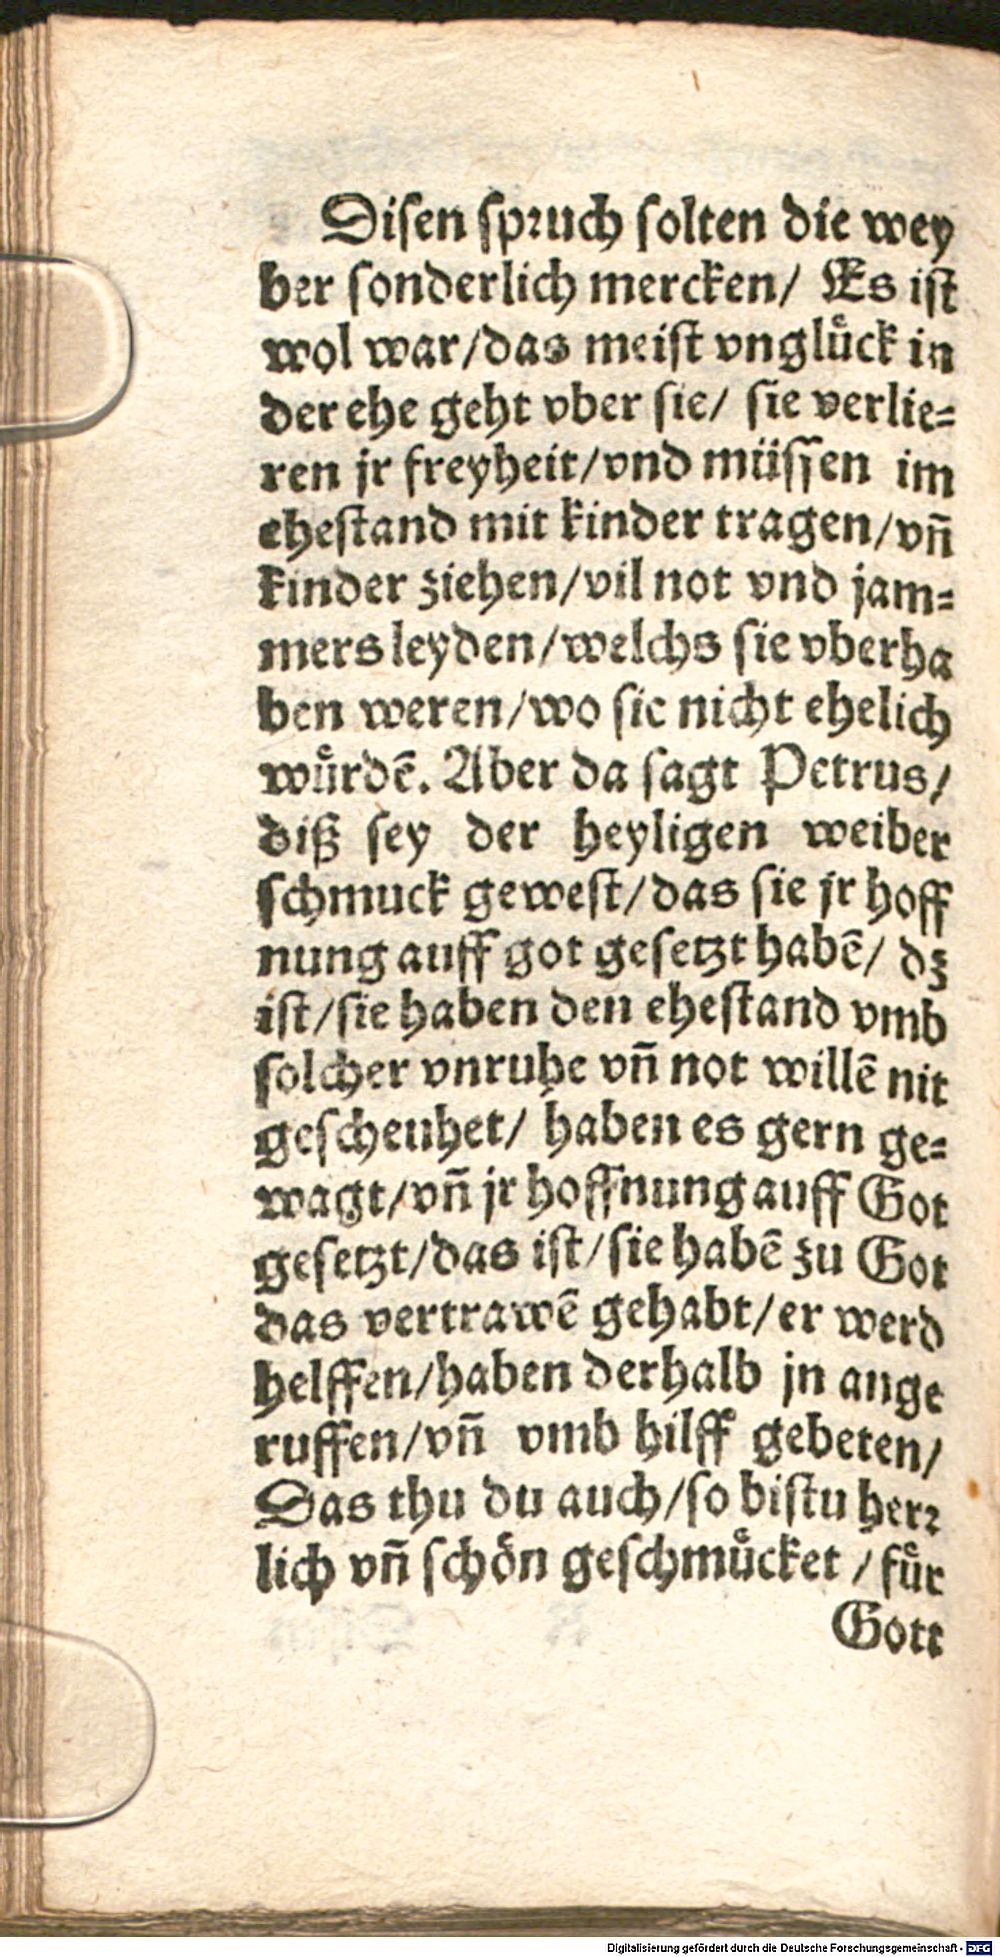 Disen spruch solten die wey
ber sonderlich mercken/ Es ist
wol war/das meist vnglück in
der ehe geht vber sie/ sie verlie=
ren jr freyheit/vnd müssen im
ehestand mit kinder tragen/vñ
kinder ziehen/vil not vnd jam=
mers leyden/welchs sie vberha
ben weren/wo sie nicht ehelich
würdē. Aber da sagt Petrus/
diß sey der heyligen weiber
schmuck gewest/das sie jr hoff
nung auff got gesetzt habē/ dz
ist/sie haben den ehestand vmb
solcher vnruhe vñ not willē nit
gescheuhet/ haben es gern ge=
wagt/vñ jr hoffnung auff Got
gesetzt/das ist/sie habē zu Got
das vertrawē gehabt/er werd
helffen/haben derhalb jn ange
ruffen/vñ vmb hilff gebeten/
Das thu du auch/so bistu herr
lich vñ schön geschmücket /für
Gott
Digitalisierung gefördert durch die Deutsche Forschungsgemeinschaft - DFG